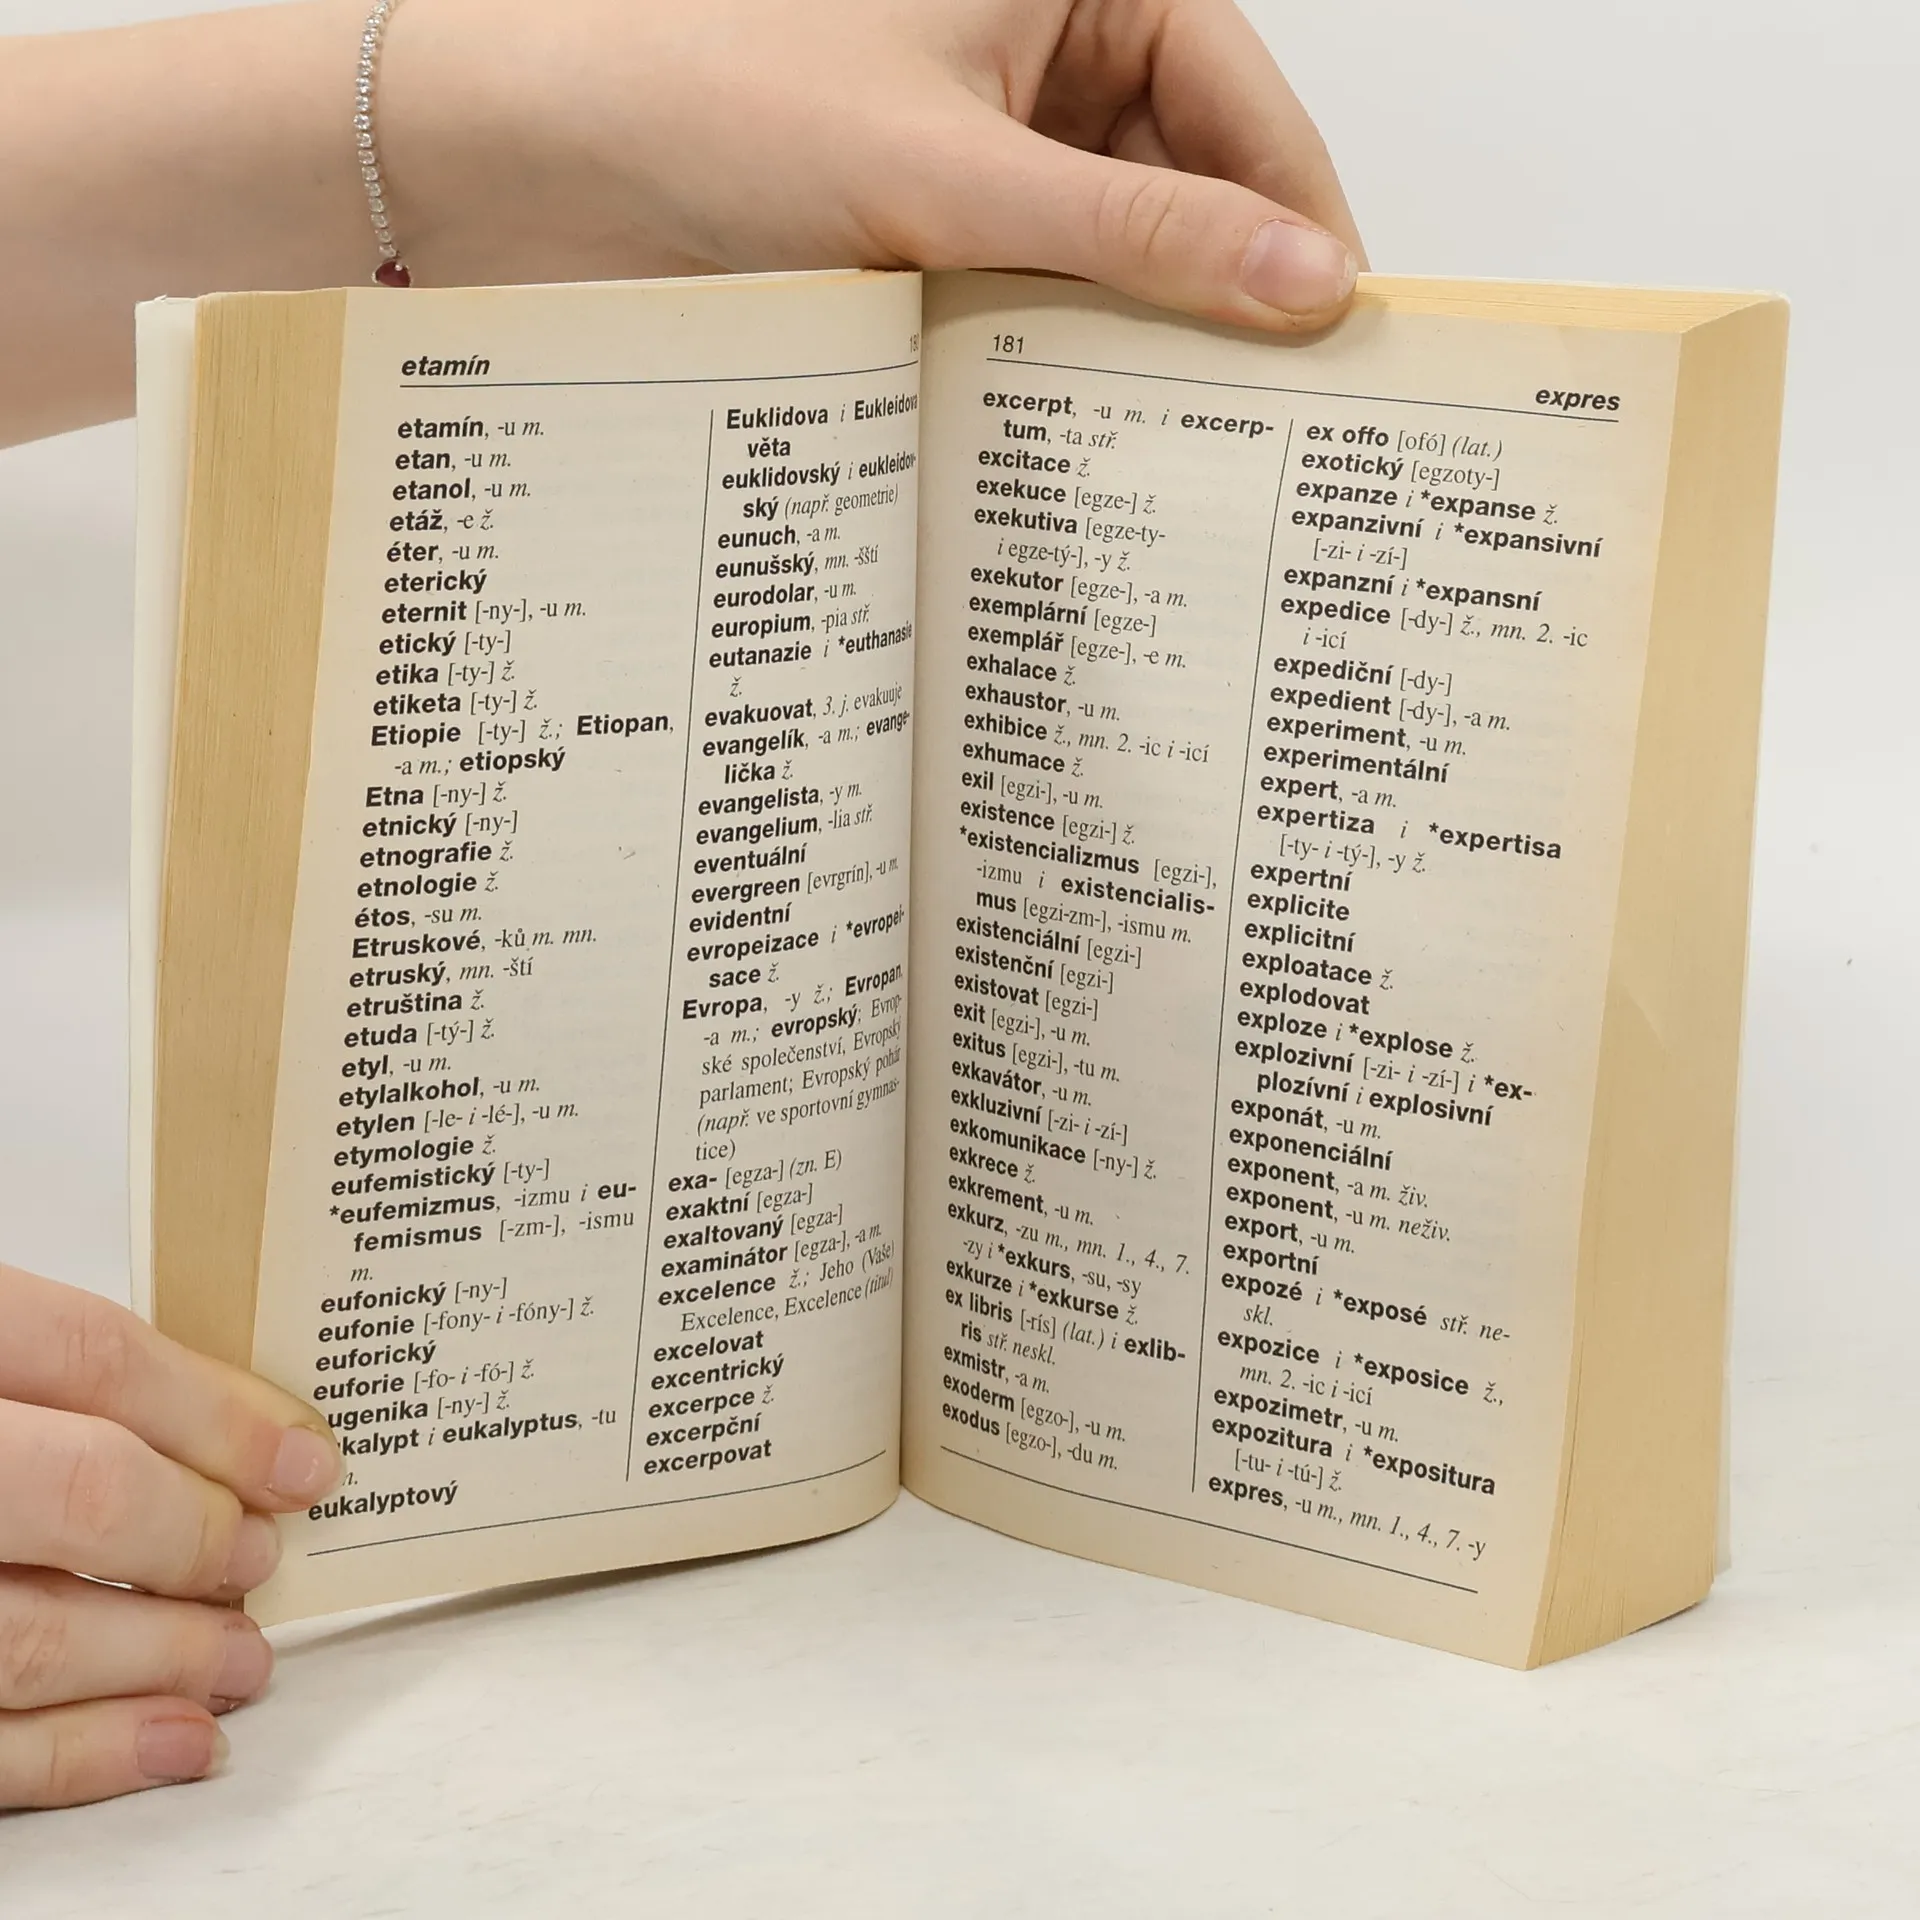 etamín
etamín, -u m.
etan, -u m.
etanol, -u m.
etáž, -e ž.
éter, -u m.
eterický
eternit [-ny-], -u m.
etický [-ty-]
etika [-ty-] ž.
etiketa [-ty-] ž.
Etiopie [-ty-] ž.; Etiopan,
-a m.; etiopský
Etna [-ny-] ž.
etnický [-ny-]
etnografie ž.
etnologie ž.
étos, -su m.
Etruskové, -ků m. mn.
etruský, mn. -ští
etruština ž.
etuda [-tý-] ž.
etyl, -u m.
etylalkohol, -u m.
etylen [-le- i -lé-], -u m.
etymologie ž.
eufemistický [-ty-]
*eufemizmus, -izmu i eu-
femismus [-zm-], -ismu
m.
eufonický [-ny-]
eufonie [-fony- i -fóny-] ž.
euforický
euforie [-fo- i -fó-] ž.
ugenika [-ny-] ž.
kalypt i eukalyptus, -tu
m.
eukalyptový
Euklidova i Eukleidova
věta
euklidovský i eukleidov-
ský (např. geometrie)
eunuch, -a m.
eunušský, mn. -šští
eurodolar, -u m.
europium, -pia stř.
eutanazie i *euthanasie
ž.
evakuovat, 3. j. evakuuje
evangelík, -a m.; evange-
lička ž.
evangelista, -y m.
evangelium, -lia stř.
eventuální
evergreen [evrgrín], -u m.
evidentní
evropeizace i *evropei-
sace ž.
Evropa, -y ž.; Evropan,
-a m.; evropský; Evrop-
ské společenství, Evropský
parlament; Evropský pohár
(např. ve sportovní gymnas-
tice)
exa- [egza-] (zn. E)
exaktní [egza-]
exaltovaný [egza-]
examinátor [egza-], -a m.
excelence ž.; Jeho (Vaše)
Excelence, Excelence (titul)
excelovat
excentrický
excerpce ž.
excerpční
excerpovat
181
expres
excerpt, -u m. i excerp-
tum, -ta stř.
excitace ž.
exekuce [egze-] ž.
exekutiva [egze-ty-
i egze-tý-], -y ž.
exekutor [egze-], -a m.
exemplární [egze-]
exemplář [egze-], -e m.
exhalace ž.
exhaustor, -u m.
exhibice ž., mn. 2. -ic i -icí
exhumace ž.
exil [egzi-], -u m.
existence [egzi-] ž.
*existencializmus [egzi-],
-izmu i existencialis-
mus [egzi-zm-], -ismu m.
existenciální [egzi-]
existenční [egzi-]
existovat [egzi-]
exit [egzi-], -u m.
exitus [egzi-], -tu m.
exkavátor, -u m.
exkluzivní [-zi- i -zí-]
exkomunikace [-ny-] ž.
exkrece ž.
exkrement, -u m.
exkurz, -zu m., mn. 1., 4., 7.
-zy i *exkurs, -su, -sy
exkurze i *exkurse ž.
ex libris [-rís] (lat.) i exlib-
ris stř. neskl.
exmistr, -a m.
exoderm [egzo-], -u m.
exodus [egzo-], -du m.
ex offo [ofó] (lat.)
exotický [egzoty-]
expanze i *expanse ž.
expanzivní i *expansivní
[-zi- i -zí-]
expanzní i *expansní
expedice [-dy-] ž., mn. 2. -ic
i -icí
expediční [-dy-]
expedient [-dy-], -a m.
experiment, -u m.
experimentální
expert, -a m.
expertiza i *expertisa
[-ty- i -tý-], -y ž.
expertní
explicite
explicitní
exploatace ž.
explodovat
exploze i *explose ž.
explozivní [-zi- i -zí-] i *ex-
plozívní i explosivní
exponát, -u m.
exponenciální
exponent, -a m. živ.
exponent, -u m. neživ.
export, -u m.
exportní
expozé i *exposé stř. ne-
skl.
expozice i *exposice ž.,
mn. 2. -ic i -icí
expozimetr, -u m.
expozitura i *expositura
[-tu- i -tú-] ž.
expres, -u m., mn. 1., 4., 7. -y